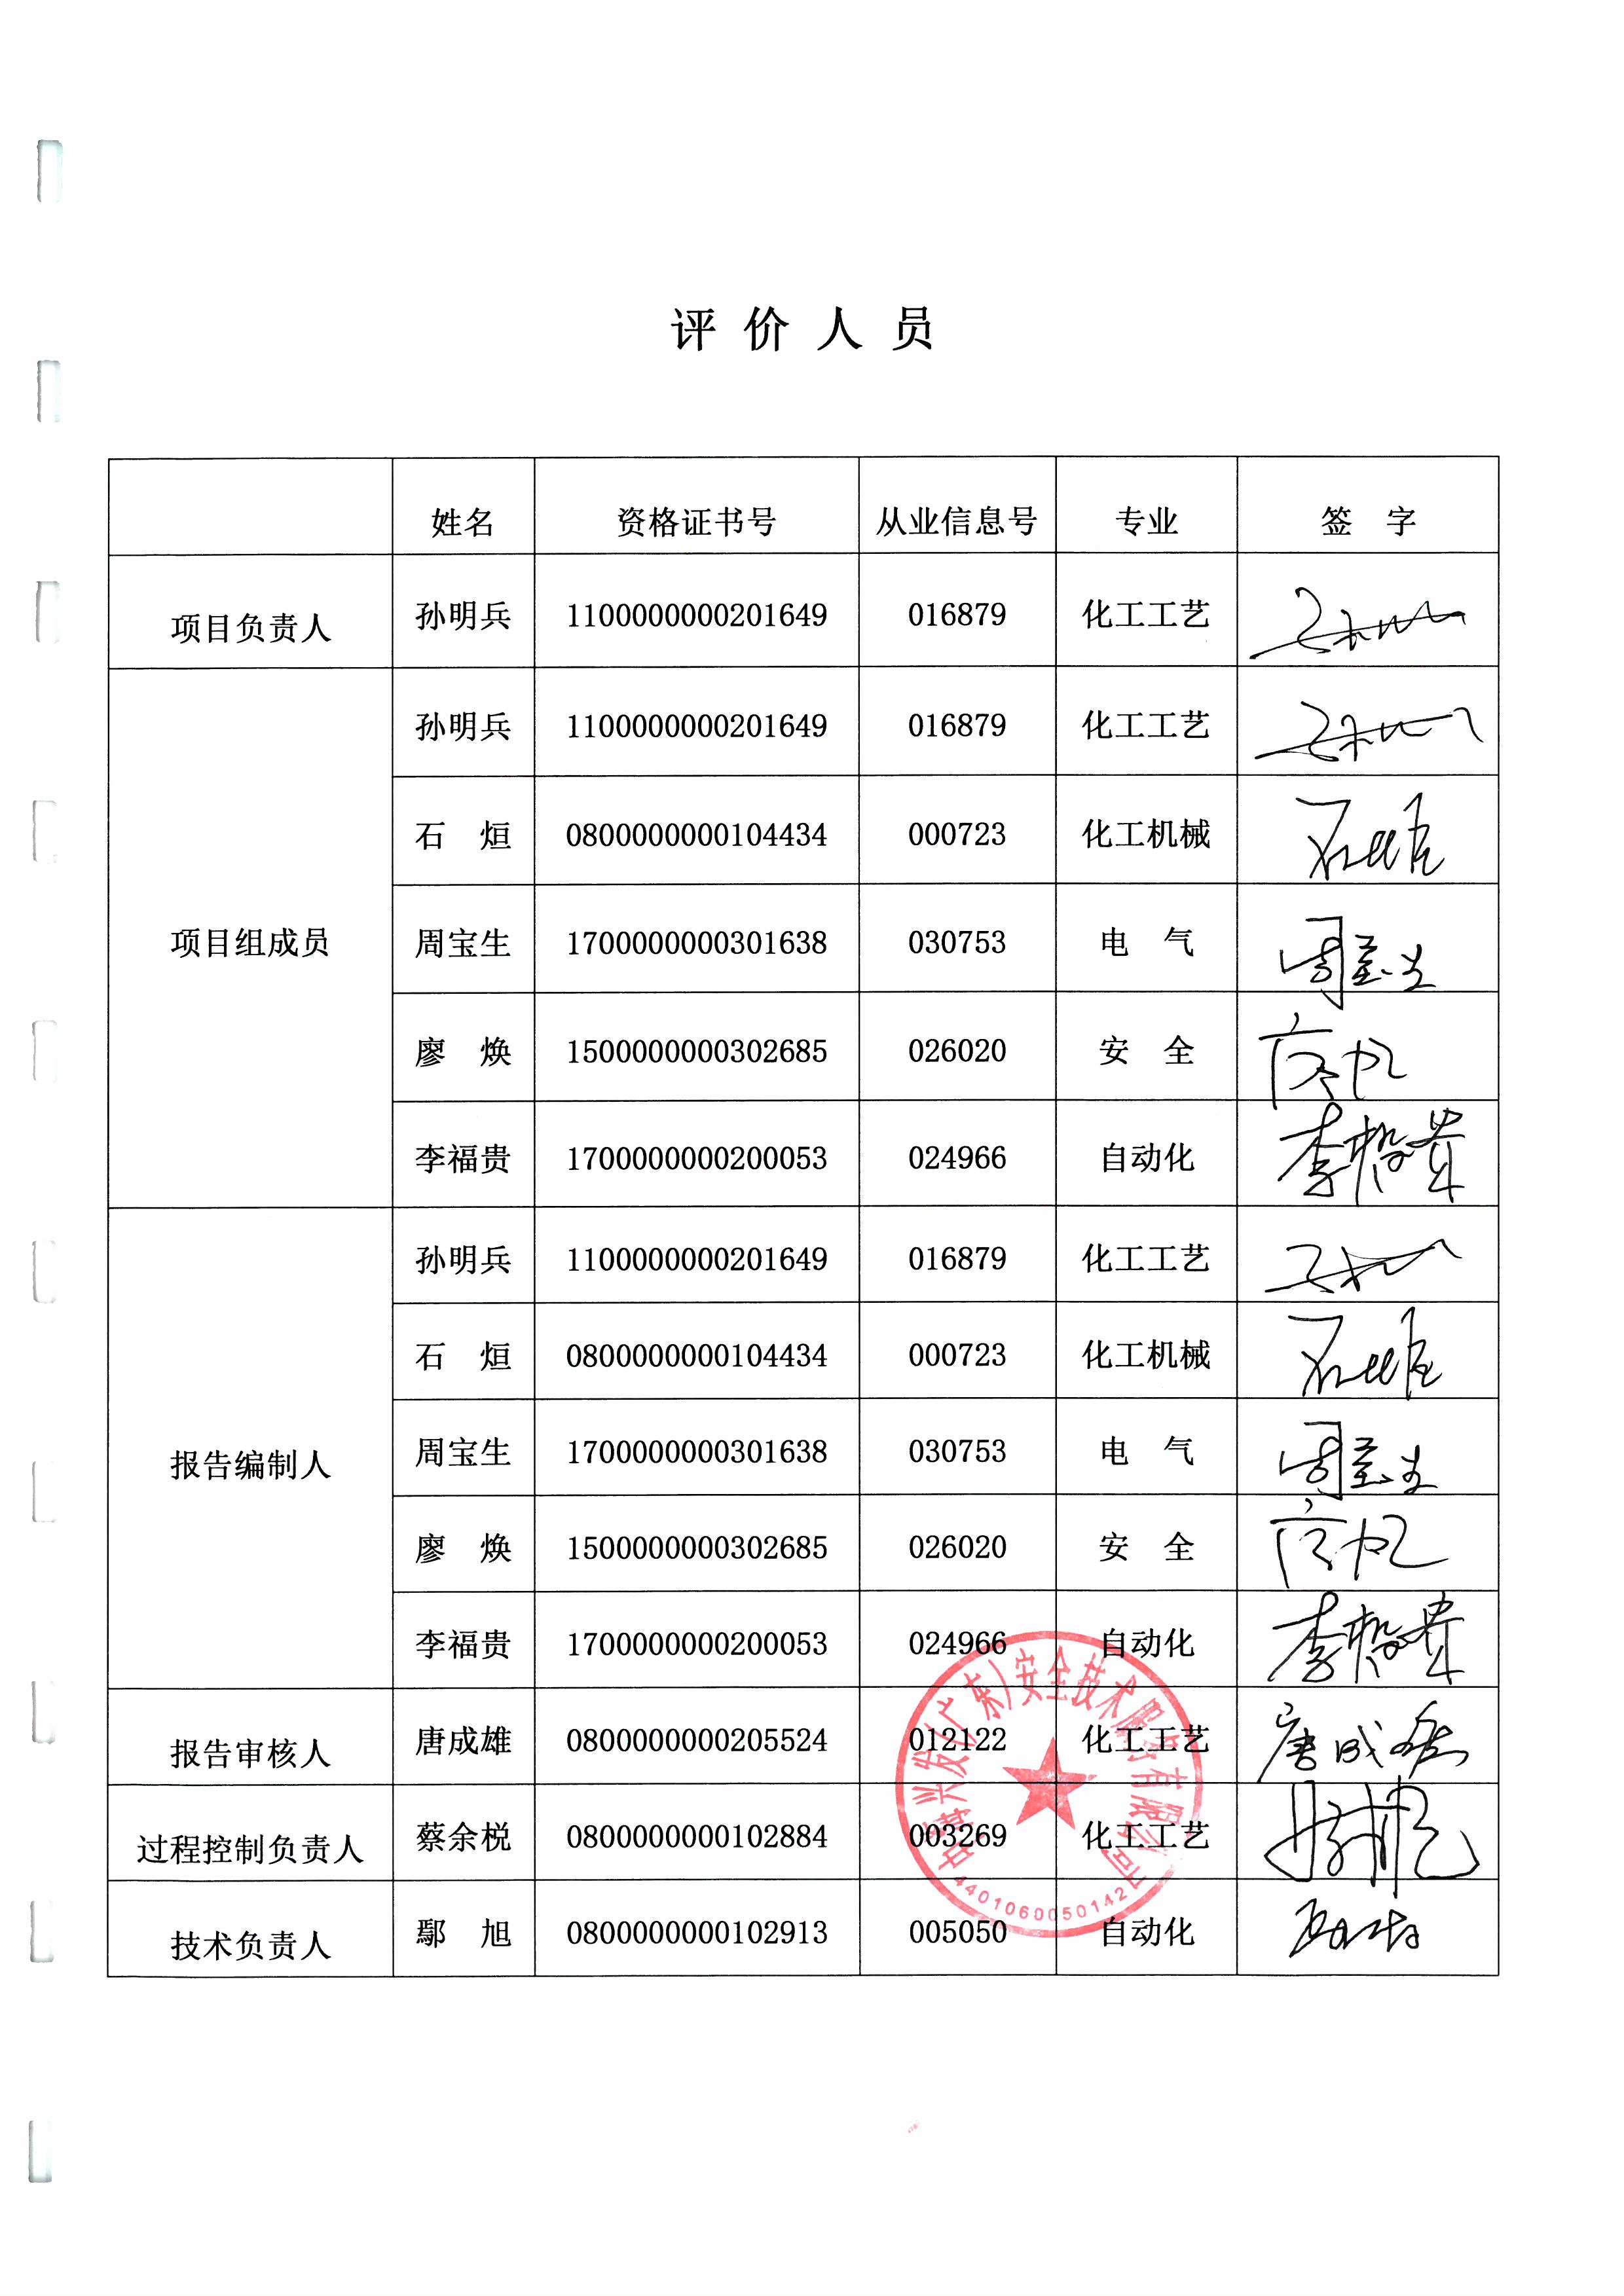 评价人员
姓名 资格证书号 从业信息号 专业 签 字
项目负责人 孙明兵 1100000000201649 016879 化工工艺
项目组成员 孙明兵 1100000000201649 016879 化工工艺
石 烜 0800000000104434 000723 化工机械
周宝生 1700000000301638 030753 电 气 周宝生
廖 焕 1500000000302685 026020 安 全
李福贵 1700000000200053 024966 自动化 李福贵
报告编制人 孙明兵 1100000000201649 016879 化工工艺
石 烜 0800000000104434 000723 化工机械
周宝生 1700000000301638 030753 电 气 周宝生
廖 焕 1500000000302685 026020 安 全
李福贵 1700000000200053 024966 自动化 李福贵
报告审核人 唐成雄 0800000000205524 012122 化工工艺 唐成雄
过程控制负责人 蔡余棁 0800000000102884 003269 化工工艺
技术负责人 鄢 旭 0800000000102913 005050 自动化
兴发(广东)安全技术服务有限公司
4401060050142